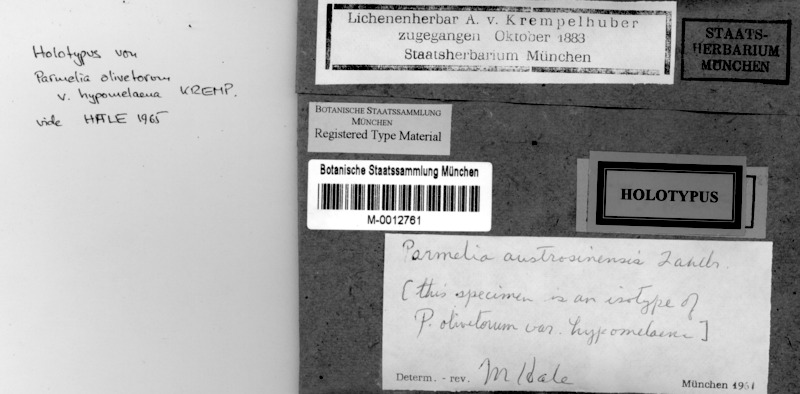 Holotypus von
Parmelia olivetorum
v. hypomelaena KREMP.
vide HALE 1965
Lichenenherbar A. v. Krempelhuber
zugegangen Oktober 1883
Staatsherbarium München
STAATS-
HERBARIUM
MÜNCHEN
BOTANISCHE STAATSSAMMLUNG
MÜNCHEN
Registered Type Material
Botanische Staatssammlung München
M-0012761
HOLOTYPUS
Parmelia austrosinensis Zahlbr.
[this specimen is an isotype of
P. olivetorum var. hypomelaena]
Determ. - rev. M Hale
München 1961